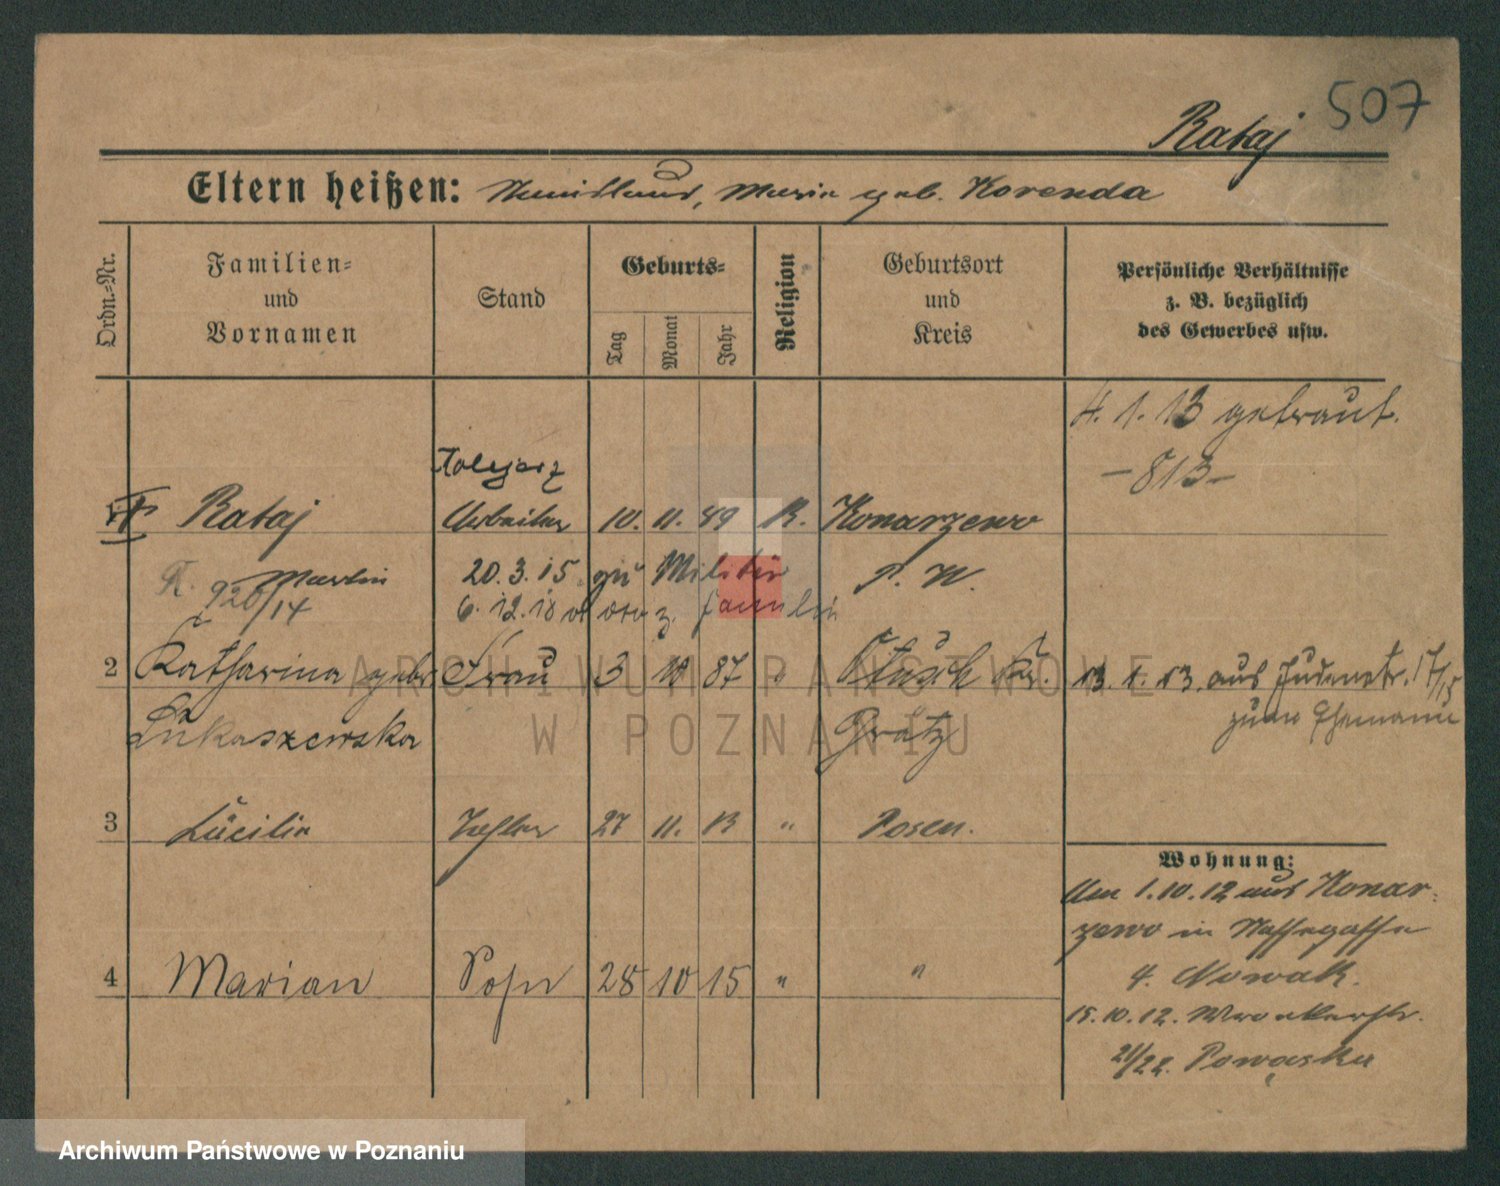 507
Rataj
Eltern heißen: Maria geb. Korenda
Ordn.-Nr.
Familien-
und
Vornamen
Stand
Geburts-
Tag
Monat
Jahr
Religion
Geburtsort
und
Kreis
Persönliche Verhältnisse
z. B. bezüglich
des Gewerbes usw.
4. 1. 13 getraut.
– 813 –
Kolejarz
Rataj Arbeiter 10. 11. 89 R. Konarzewo
Martin 20. 3. 15. zu Militär P. W.
926/14 6. 12. 18 z. Familie
2 Katharina geb. Frau 3 10 87 " Otusch Kr. 13. 1. 13. aus Judenstr. 17/15
Lukaszewska Grätz zum Ehemann
3 Lucilie Tochter 27 11. 13 " Posen.
4 Marian Sohn 28 10 15 " "
Wohnung:
Am 1.10.12 aus Konar-
zewo in Nassegasse
4. Nowak.
15.10.12. Wronkerstr.
21/22. Powąska
ARCHIWUM PAŃSTWOWE
W POZNANIU
Archiwum Państwowe w Poznaniu